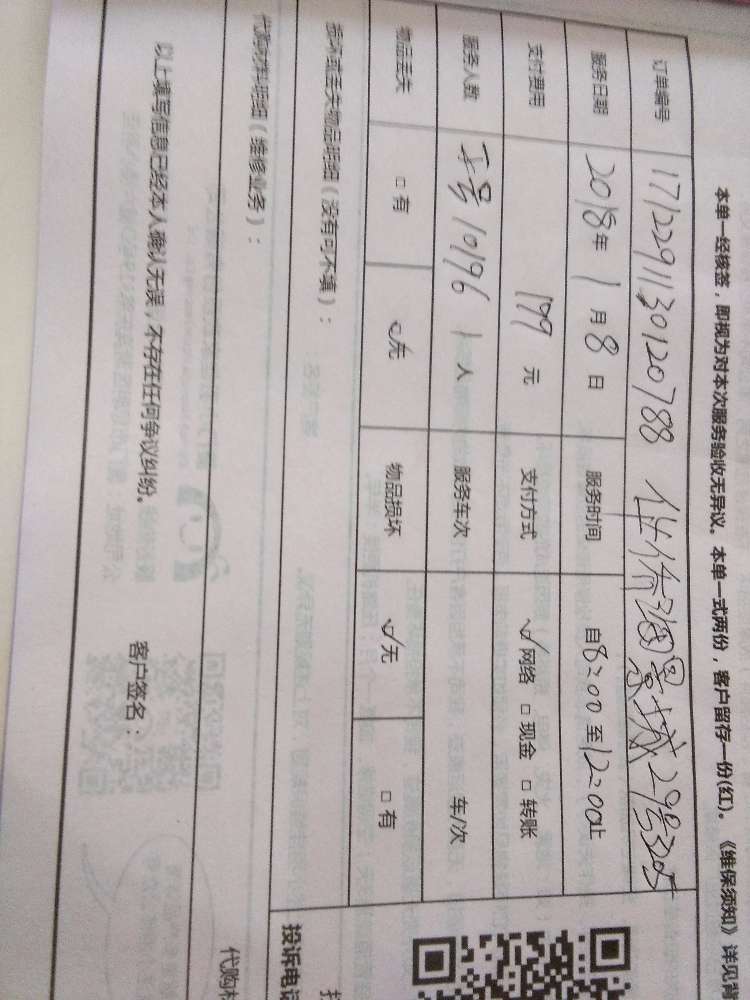 本单一经核签，即视为对本次服务验收无异议。本单一式两份，客户留存一份(红)。《维保须知》详见背
订单编号 1712291130120788 侨海景城29号305
服务日期 2018年1月8日 服务时间 自8:00至12:00止
支付费用 199元 支付方式 ☑网络 □现金 □转账
服务人数 工号10196 1人 服务车次 车/次
物品丢失 □有 ☑无 物品损坏 ☑无 □有
损坏或丢失物品明细（没有可不填）：
投诉电话
代购材料明细（维修业务）：
代购材
以上填写信息已经本人确认无误，不存在任何争议纠纷。
客户签名：